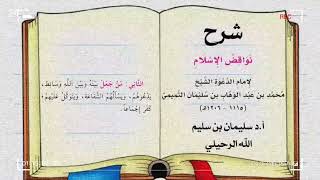 REC
شرح
نَوَاقِضُ الإِسْلَام
لإمَامِ الدَّعْوَةِ الشَّيْخِ
مُحَمَّد بن عَبْدِ الوَهَّابِ بن سُلَيْمَان التَّمِيمِيّ
(١١١٥ - ١٢٠٦ هـ)
أ.د سليمان بن سليم
الله الرحيلي
الثَّانِي : مَنْ جَعَلَ بَيْنَهُ وَبَيْنَ اللَّهِ وَسَائِطَ،
يَدْعُوهُمْ، وَيَسْأَلُهُمُ الشَّفَاعَةَ، وَيَتَوَكَّلُ عَلَيْهِمْ،
كَفَرَ إِجْمَاعًا.